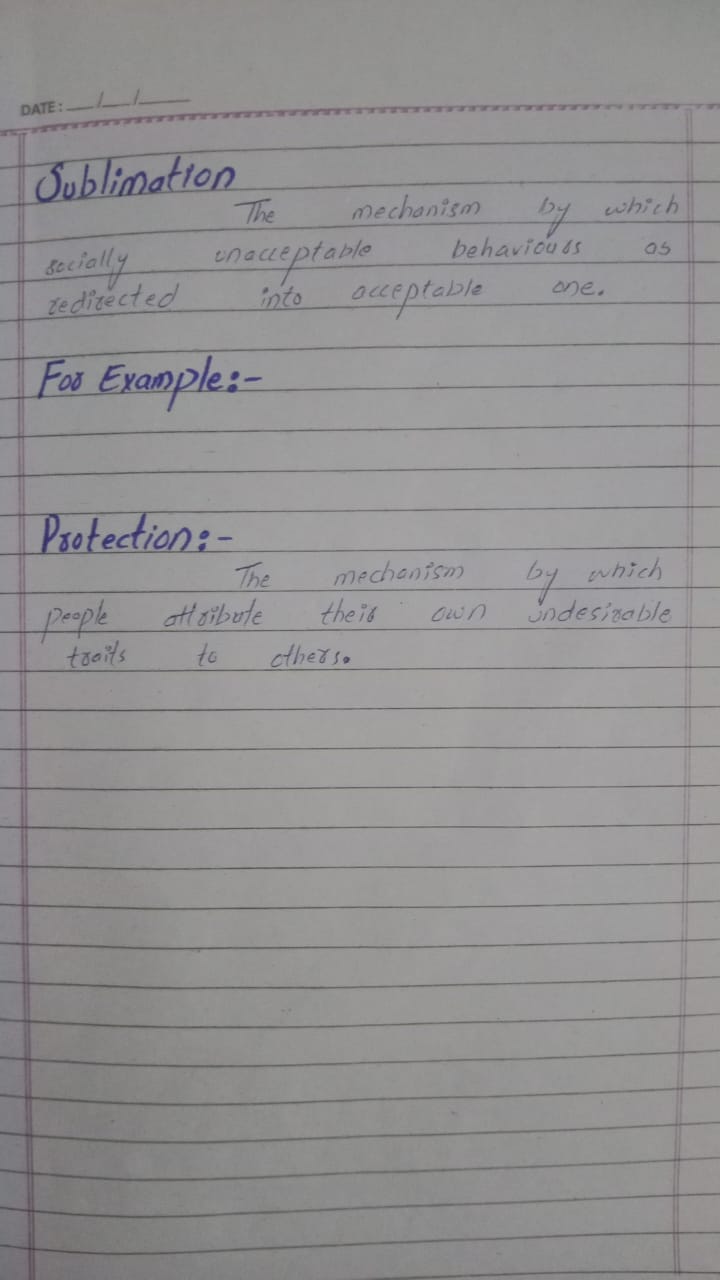 DATE: __/__/____
Sublimation
The mechanism by which
socially unacceptable behaviours as
redirected into acceptable one.
For Example:-
Protection:-
The mechanism by which
people attribute their own undesirable
traits to others.